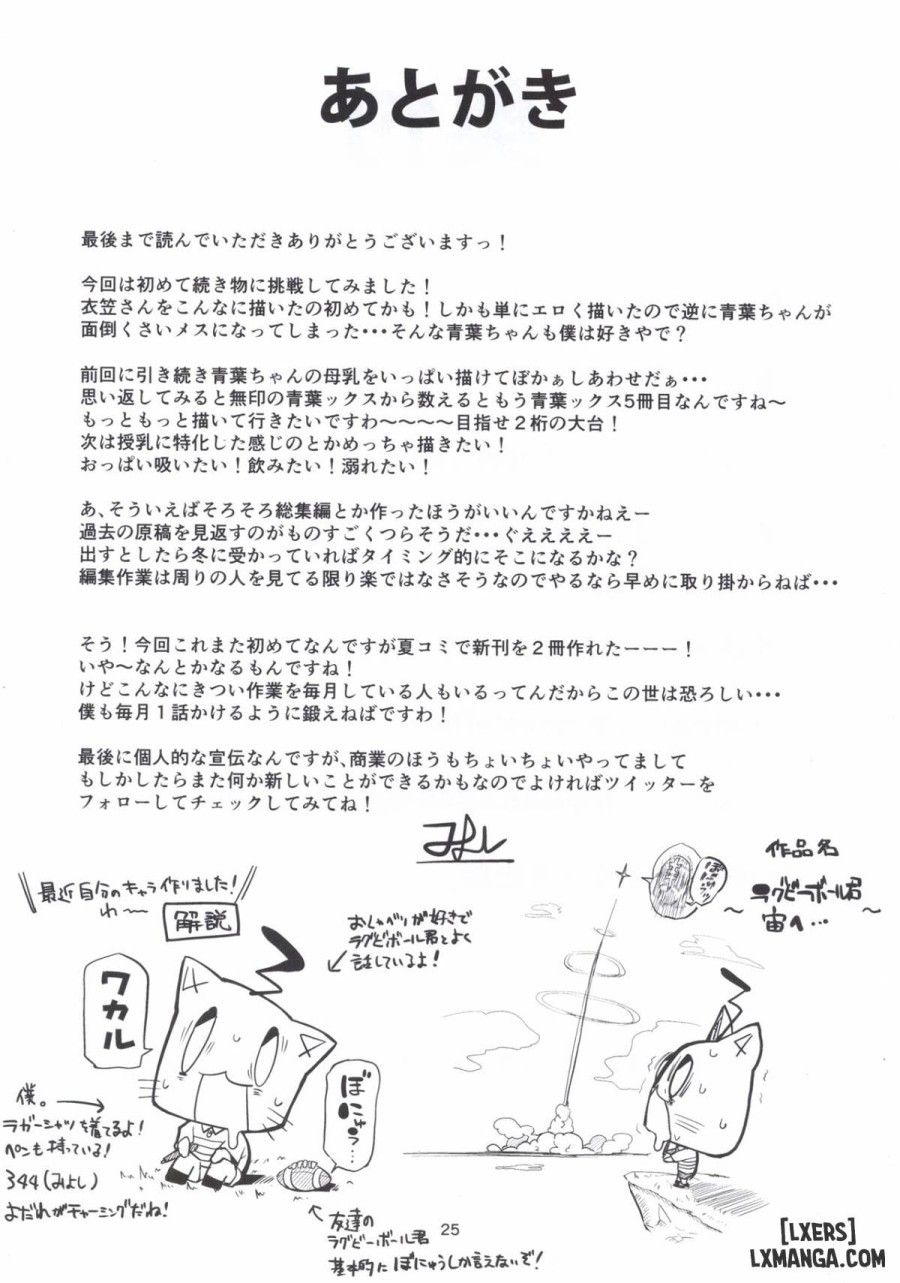 あとがき
最後まで読んでいただきありがとうございますっ！
今回は初めて続き物に挑戦してみました！
衣笠さんをこんなに描いたの初めてかも！しかも単にエロく描いたので逆に青葉ちゃんが
面倒くさいメスになってしまった・・・そんな青葉ちゃんも僕は好きやで？
前回に引き続き青葉ちゃんの母乳をいっぱい描けてぼかぁしあわせだぁ・・・
思い返してみると無印の青葉ックスから数えるともう青葉ックス5冊目なんですね〜
もっともっと描いて行きたいですわ〜〜〜〜目指せ２桁の大台！
次は授乳に特化した感じのとかめっちゃ描きたい！
おっぱい吸いたい！飲みたい！溺れたい！
あ、そういえばそろそろ総集編とか作ったほうがいいんですかねえー
過去の原稿を見返すのがものすごくつらそうだ・・・ぐえええええー
出すとしたら冬に受かっていればタイミング的にそこになるかな？
編集作業は周りの人を見てる限り楽ではなさそうなのでやるなら早めに取り掛からねば・・・
そう！今回これまた初めてなんですが夏コミで新刊を２冊作れたーーー！
いや〜なんとかなるもんですね！
けどこんなにきつい作業を毎月している人もいるってんだからこの世は恐ろしい・・・
僕も毎月１話かけるように鍛えねばですわ！
最後に個人的な宣伝なんですが、商業のほうもちょいちょいやってまして
もしかしたらまた何か新しいことができるかもなのでよければツイッターを
フォローしてチェックしてみてね！
みよし
最近自分のキャラ作りました！
わ〜
解説
おしゃべりが好きで
ラグビーボール君とよく
話しているよ！
ワカル
ぼにゅう…
僕。
ラガーシャツを着てるよ！
ペンも持っている！
344(みよし)
よだれがチャーミングだね！
友達の
ラグビーボール君
基本的にぼにゅうしか言えないぞ！
作品名
〜ラグビーボール君
宙へ…〜
25
[LXERS]
LXMANGA.COM